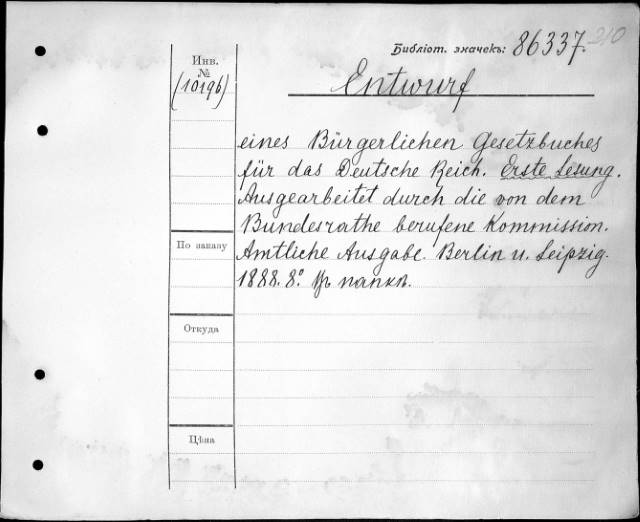 Библіот. значекъ: 86337. 210
Инв.
№
(10196)
Entwurf
eines Bürgerlichen Gesetzbuches
für das Deutsche Reich. Erste Lesung.
Ausgearbeitet durch die von dem
Bundesrathe berufene Kommission.
По заказу
Amtliche Ausgabe. Berlin u. Leipzig.
1888. 8.° папкѣ.
Откуда
Цѣна